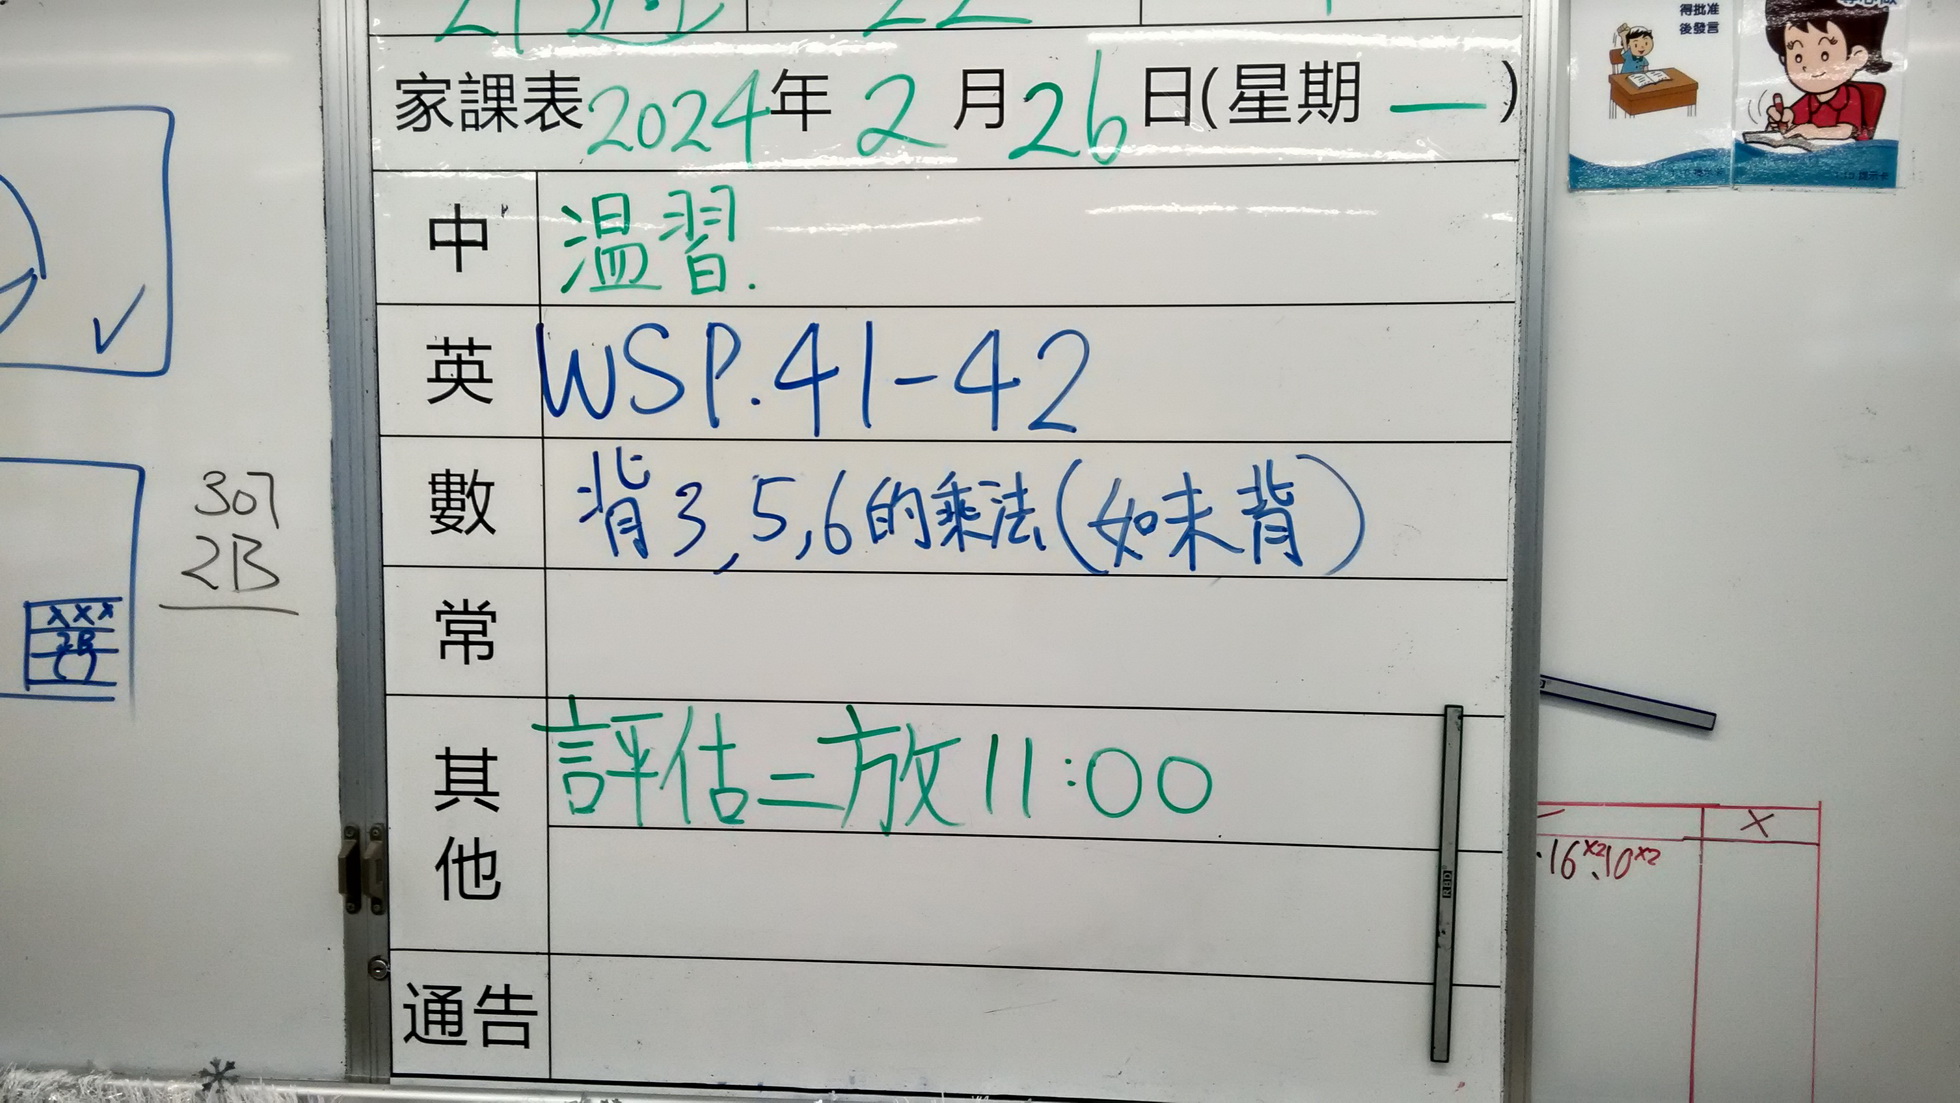 家課表 2024年 2月26日(星期一)
中 温習.
英 WSP.41-42
數 背3,5,6的乘法(如未背)
常
其他 評估二放11:00
通告
307
2B
xxx
2B
()
得批准
後發言
x
16x2、10x2